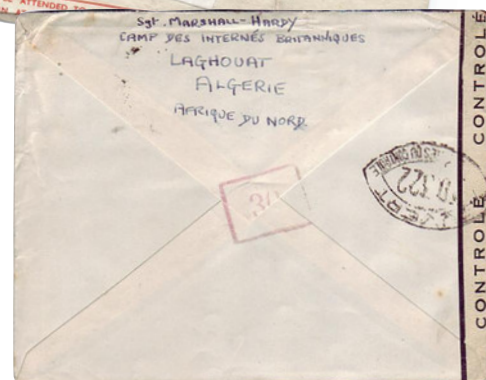 ATTENDED TO
Sgt. MARSHALL-HARDY
CAMP DES INTERNÉS BRITANNIQUES
LAGHOUAT
ALGERIE
AFRIQUE DU NORD
CONTROLÉ
CONTROLÉ